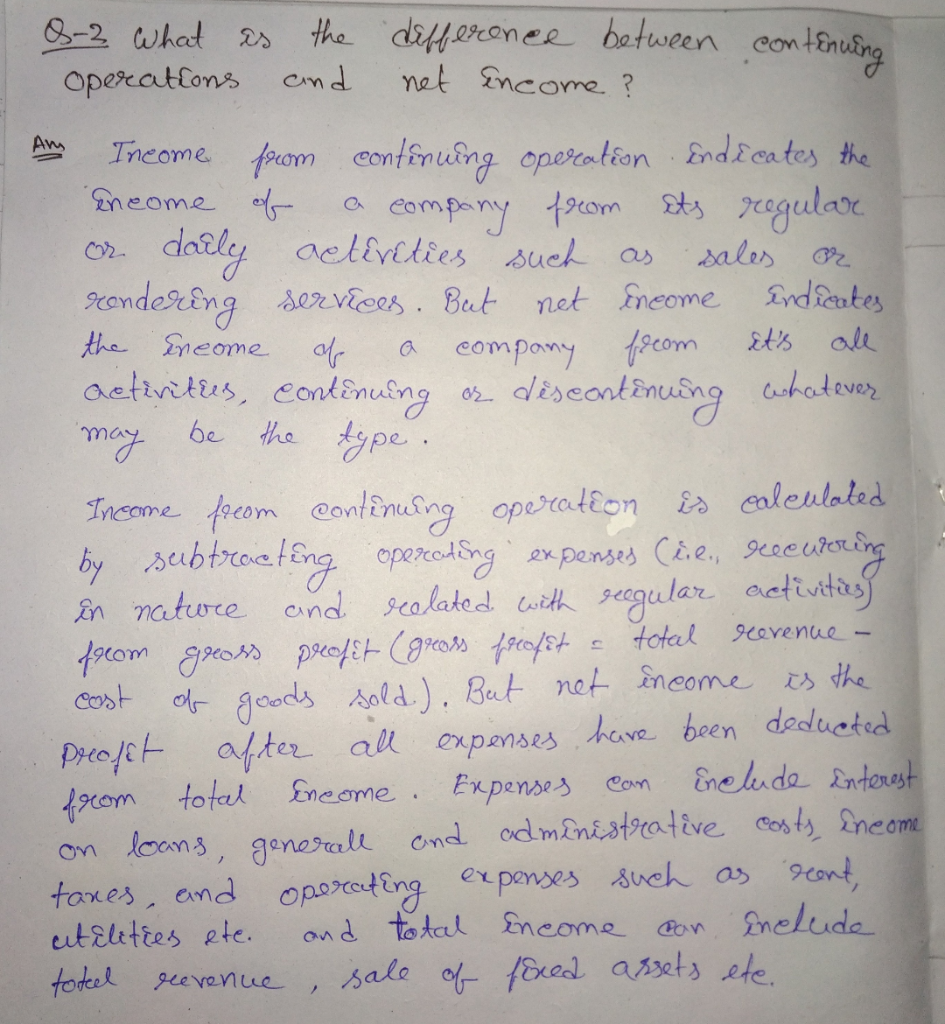 Q-2 What is the difference between continuing
operations and net income ?
Ans Income from continuing operation indicates the
income of a company from its regular
or daily activities such as sales or
rendering services. But net income indicates
the income of a company from it's all
activities, continuing or discontinuing whatever
may be the type.
Income from continuing operation is calculated
by subtracting operating expenses (i.e., reccurring
in nature and related with regular activities)
from gross profit (gross profit = total revenue -
cost of goods sold). But net income is the
profit after all expenses have been deducted
from total income. Expenses can include interest
on loans, generall and administrative costs, income
taxes, and operating expenses such as rent,
utilities etc. and total income can include
total revenue, sale of fixed assets etc.